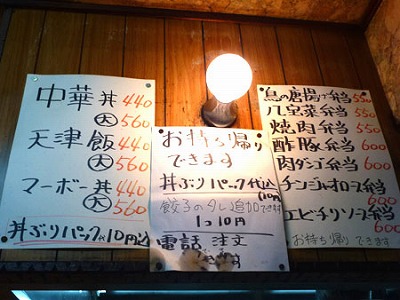 中華丼 440
大 560
天津飯 440
大 560
マーボー丼 440
大 560
丼ぶりパック代10円込
お持ち帰り
できます
丼ぶりパック代込
10円
餃子のタレ追加できます
1コ10円
電話注文
できます
鳥の唐揚げ弁当 550
八宝菜弁当 550
焼肉弁当 550
酢豚弁当 600
肉ダンゴ弁当 600
チンジャオロース弁当
600
エビチリソース弁当
600
お持ち帰りできます